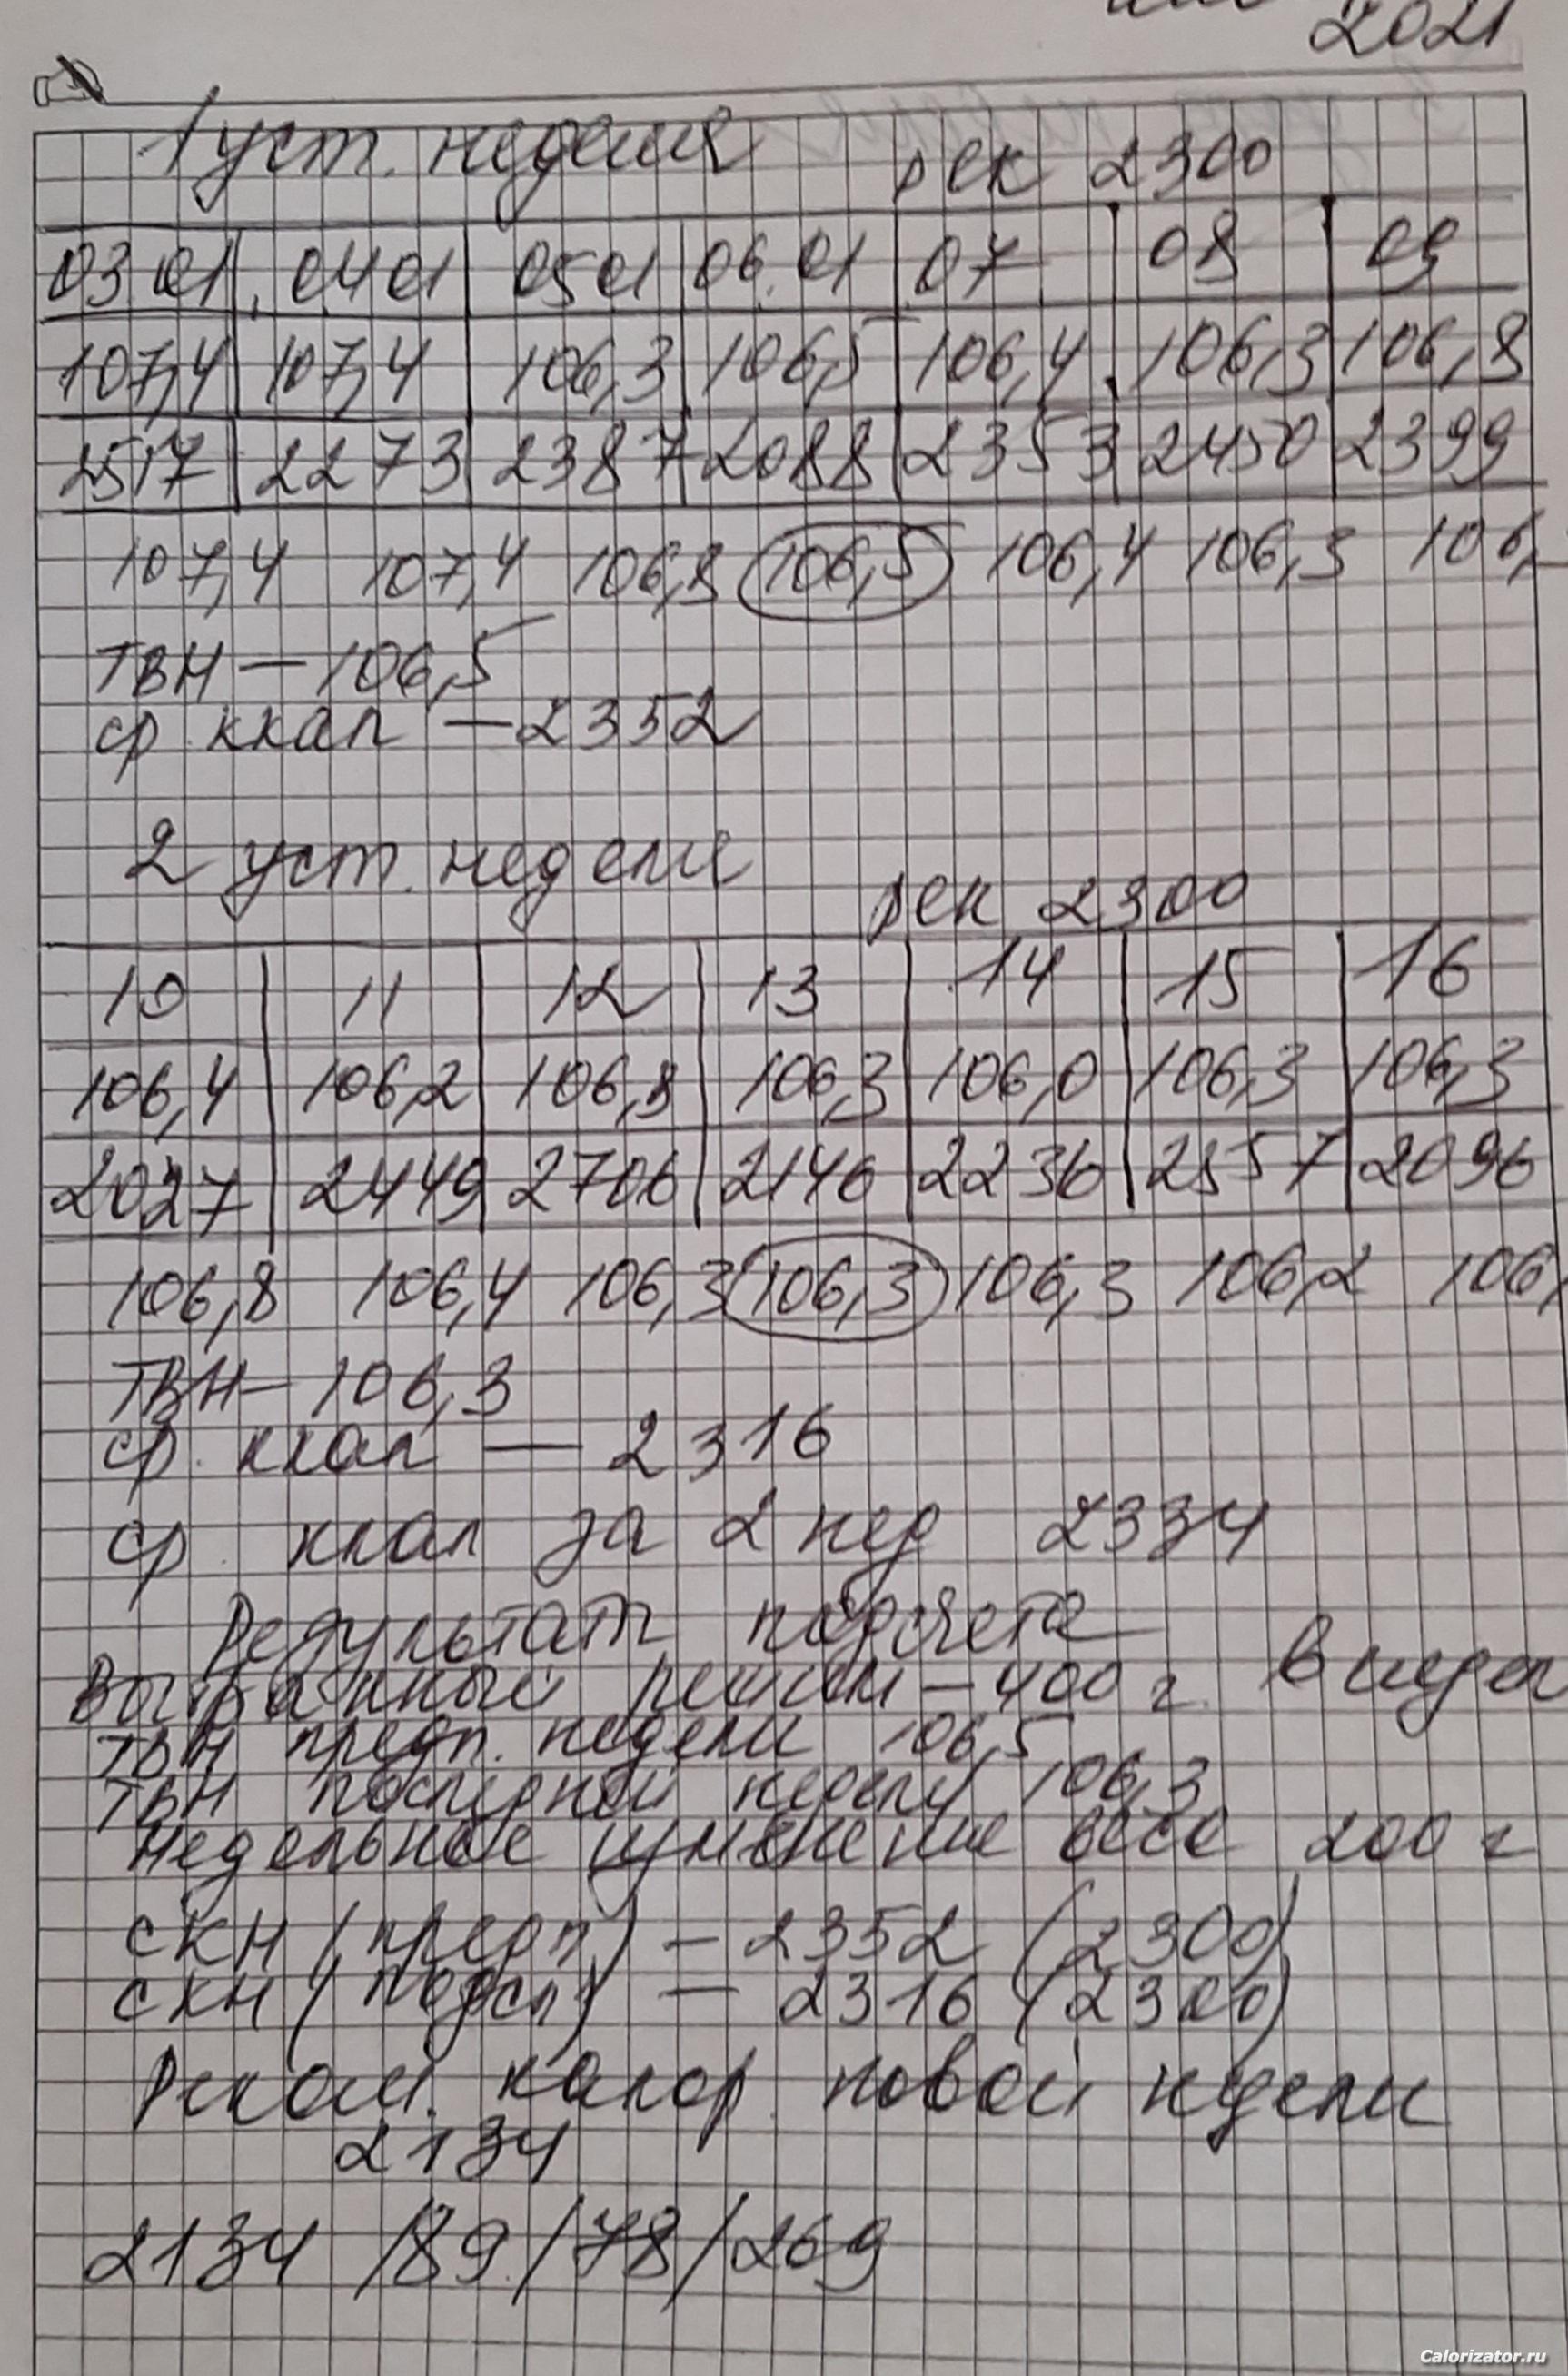 2021
1 уст. неделя рек 2300
03 01 04 01 05 01 06.01 07 08 09
107,4 107,4 106,3 106,5 106,4 106,3 106,8
2517 2273 2387 2088 2353 2450 2399
107,4 107,4 106,8 106,5 106,4 106,3 106,
ТВН – 106,5
ср ккал – 2352
2 уст. неделя
рек 2300
10 11 12 13 14 15 16
106,4 106,2 106,8 106,3 106,0 106,3 106,3
2027 2449 2706 2146 2236 2557 2096
106,8 106,4 106,3 106,3 106,3 106,2 106,
ТВН – 106,3
ср. ккал – 2316
ср. ккал за 2 нед 2334
Результат подсчета
Выбранный режим – 400 г. в неде
ТВН предп. недели 106,5
ТВН последней недели 106,3
недельное изменение веса 200 г
СКН (предп) – 2352 (2300)
СКН (посл) – 2316 (2300)
Реком. калор. новой недели
2134
2134 /89/78/269
Calorizator.ru